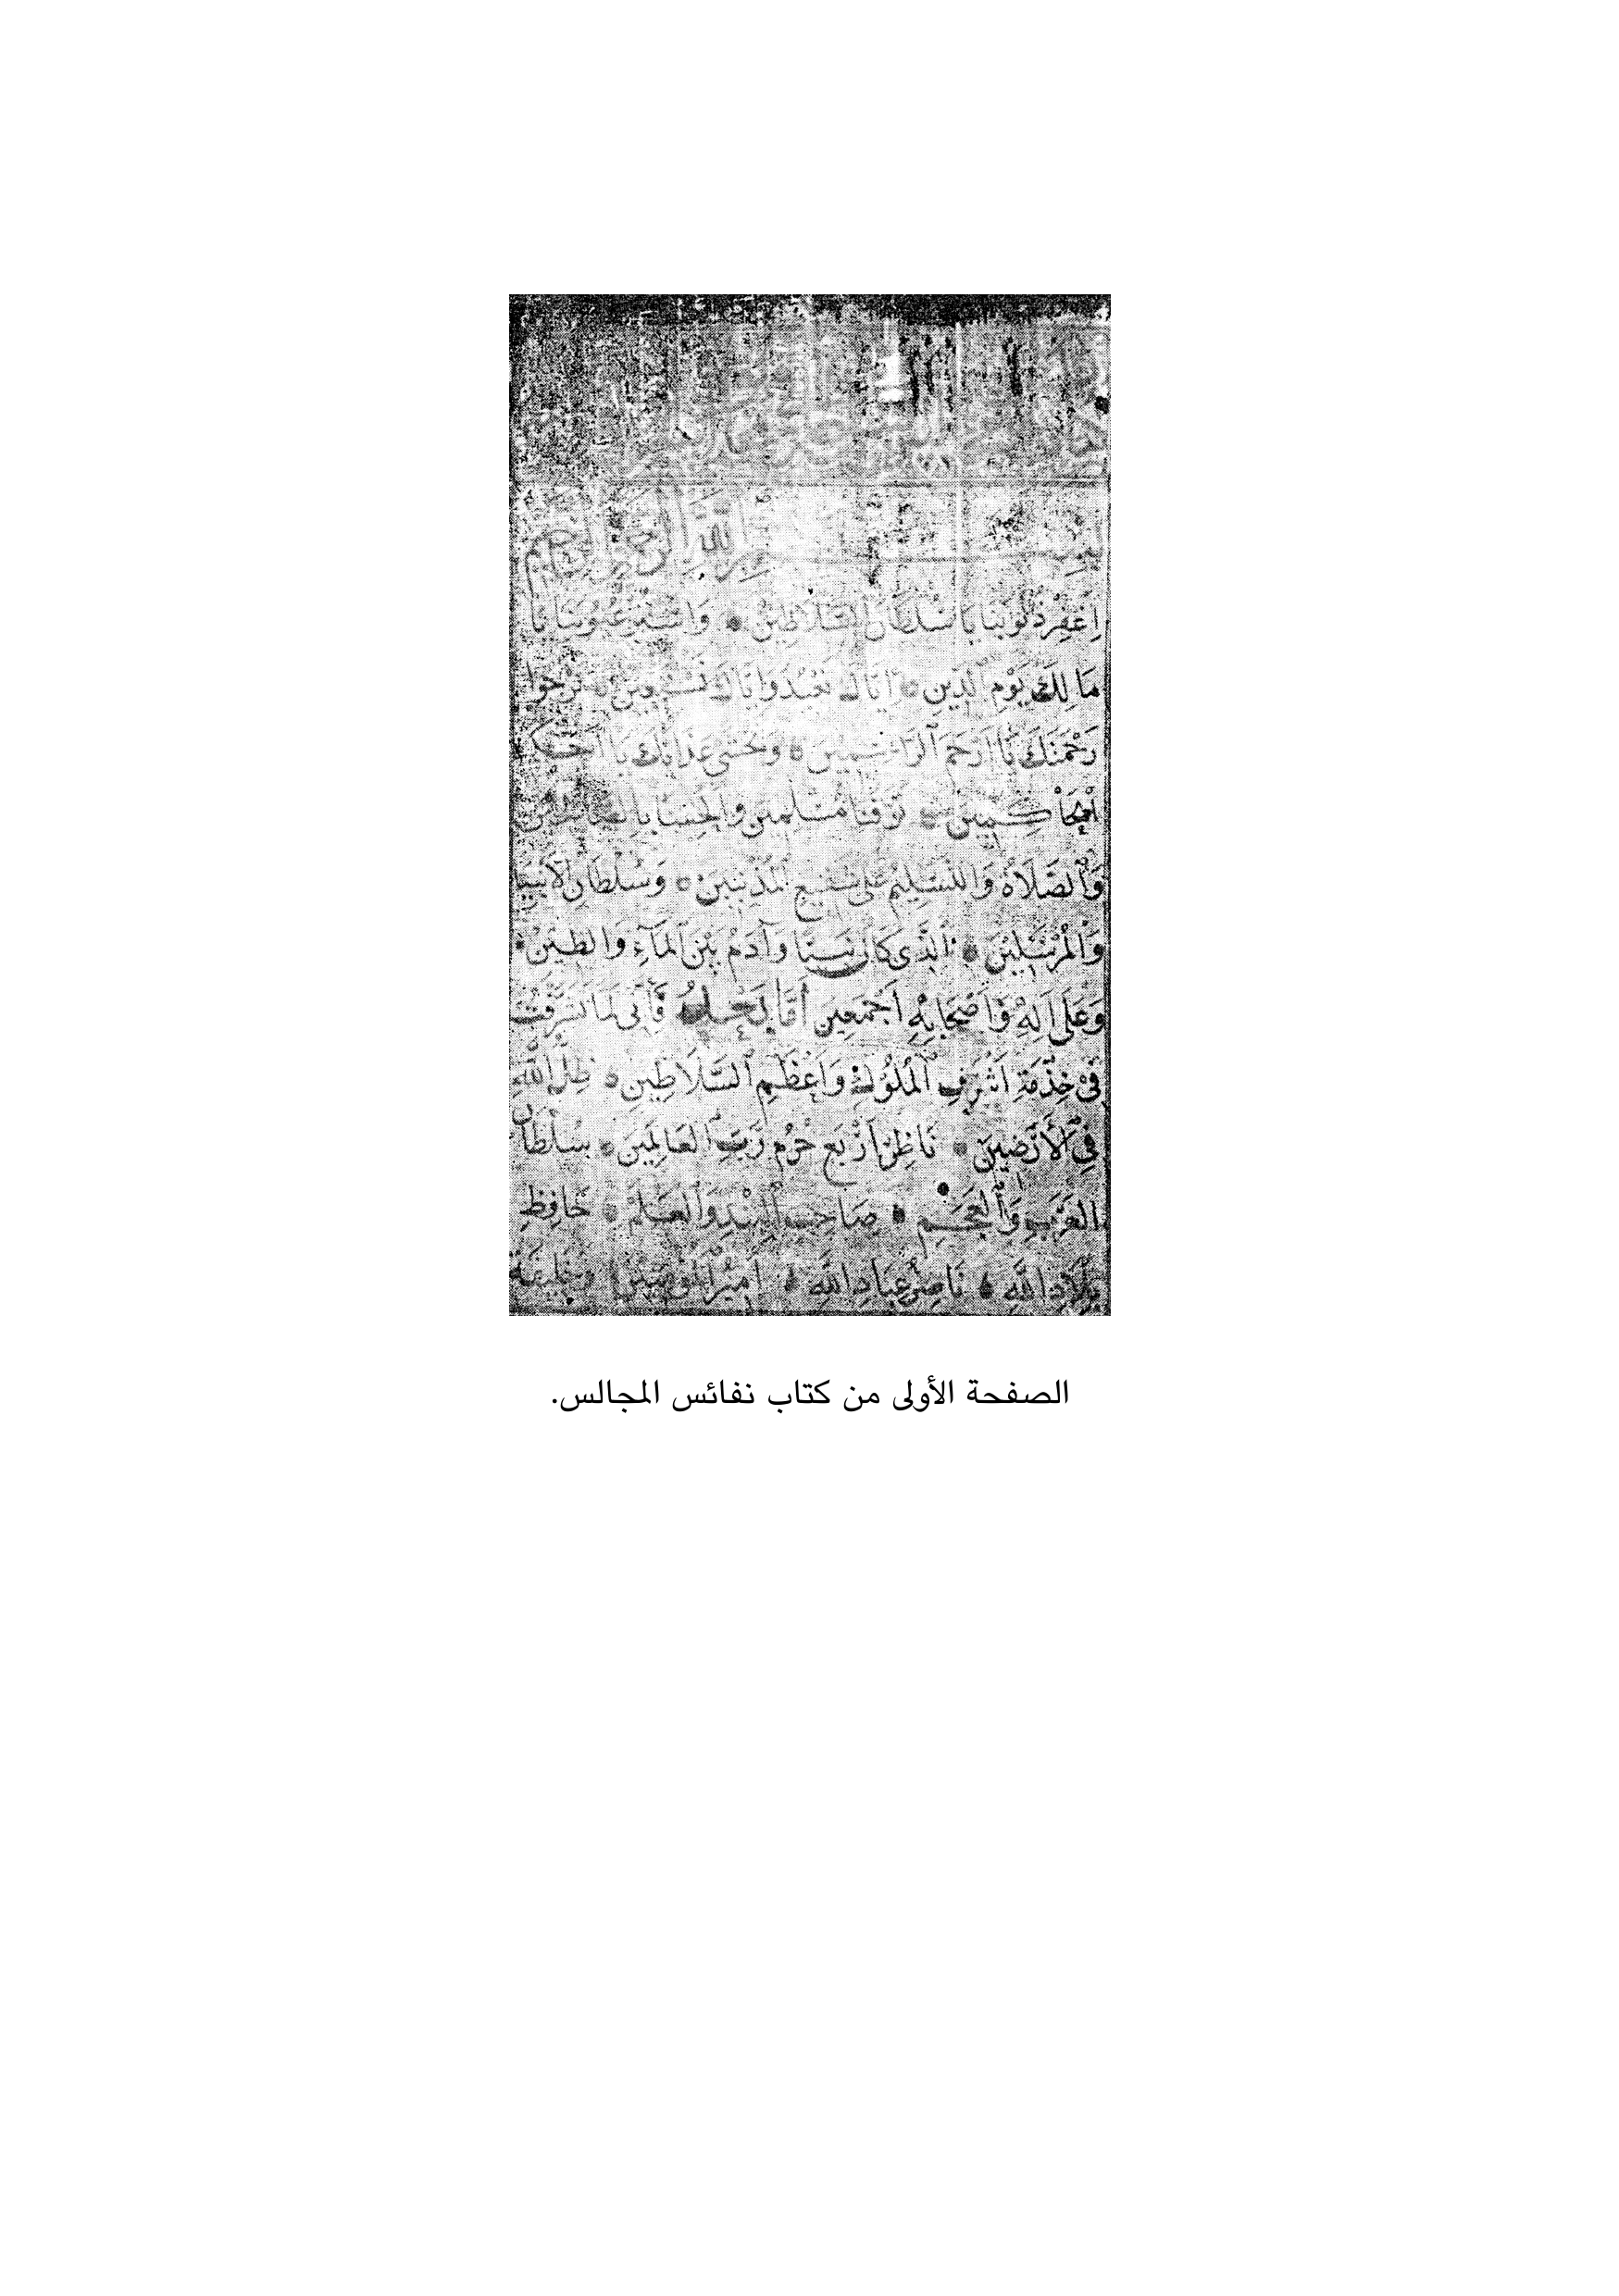 بسم الله الرحمن الرحيم
اِغْفِرْ ذُنُوبَنَا يَا سُلْطَانَ السَّلَاطِيْنَ وَاسْتُرْ عُيُوبَنَا يَا
مَالِكَ يَوْمِ الدِّينِ اِيَّاكَ نَعْبُدُ وَاِيَّاكَ نَسْتَعِينُ نَرْجُوا
رَحْمَتَكَ يَا اَرْحَمَ الرَّاحِمِينَ وَنَخْشَى عَذَابَكَ يَا اَحْكَمَ
الْحَاكِمِينَ تَوَفَّنَا مُسْلِمِينَ وَاَلْحِقْنَا بِالصَّالِحِينَ
وَالصَّلَاةُ وَالتَّسْلِيْمُ عَلَى شَفِيعِ الْمُذْنِبِينَ وَسُلْطَانِ الْاَنْبِيَا
وَالْمُرْسَلِيْنَ الَّذِي كَانَ نَبِيًّا وَآدَمُ بَيْنَ الْمَآءِ وَالطِّيْنِ
وَعَلَى آلِهِ وَاَصْحَابِهِ اَجْمَعِيْنَ اَمَّا بَعْدُ فَاِنِّي لَمَّا تَشَرَّفْتُ
فِي خِدْمَةِ اَشْرَفِ الْمُلُوْكِ وَاَعْظَمِ السَّلَاطِيْنِ ظِلِّ اللّٰهِ
فِي الْاَرَضِيْنَ نَاظِرِ اَرْبَعِ حَرَمِ رَبِّ الْعَالَمِيْنَ سُلْطَانِ
الْعَرَبِ وَالْعَجَمِ صَاحِبِ الْهِنْدِ وَالْعَلَمِ حَافِظِ
بِلَادِ اللّٰهِ نَاصِرِ عِبَادِ اللّٰهِ اَمِيْرِ الْمُؤْمِنِيْنَ وَخَلِيفَةِ
الصفحة الأولى من كتاب نفائس المجالس.